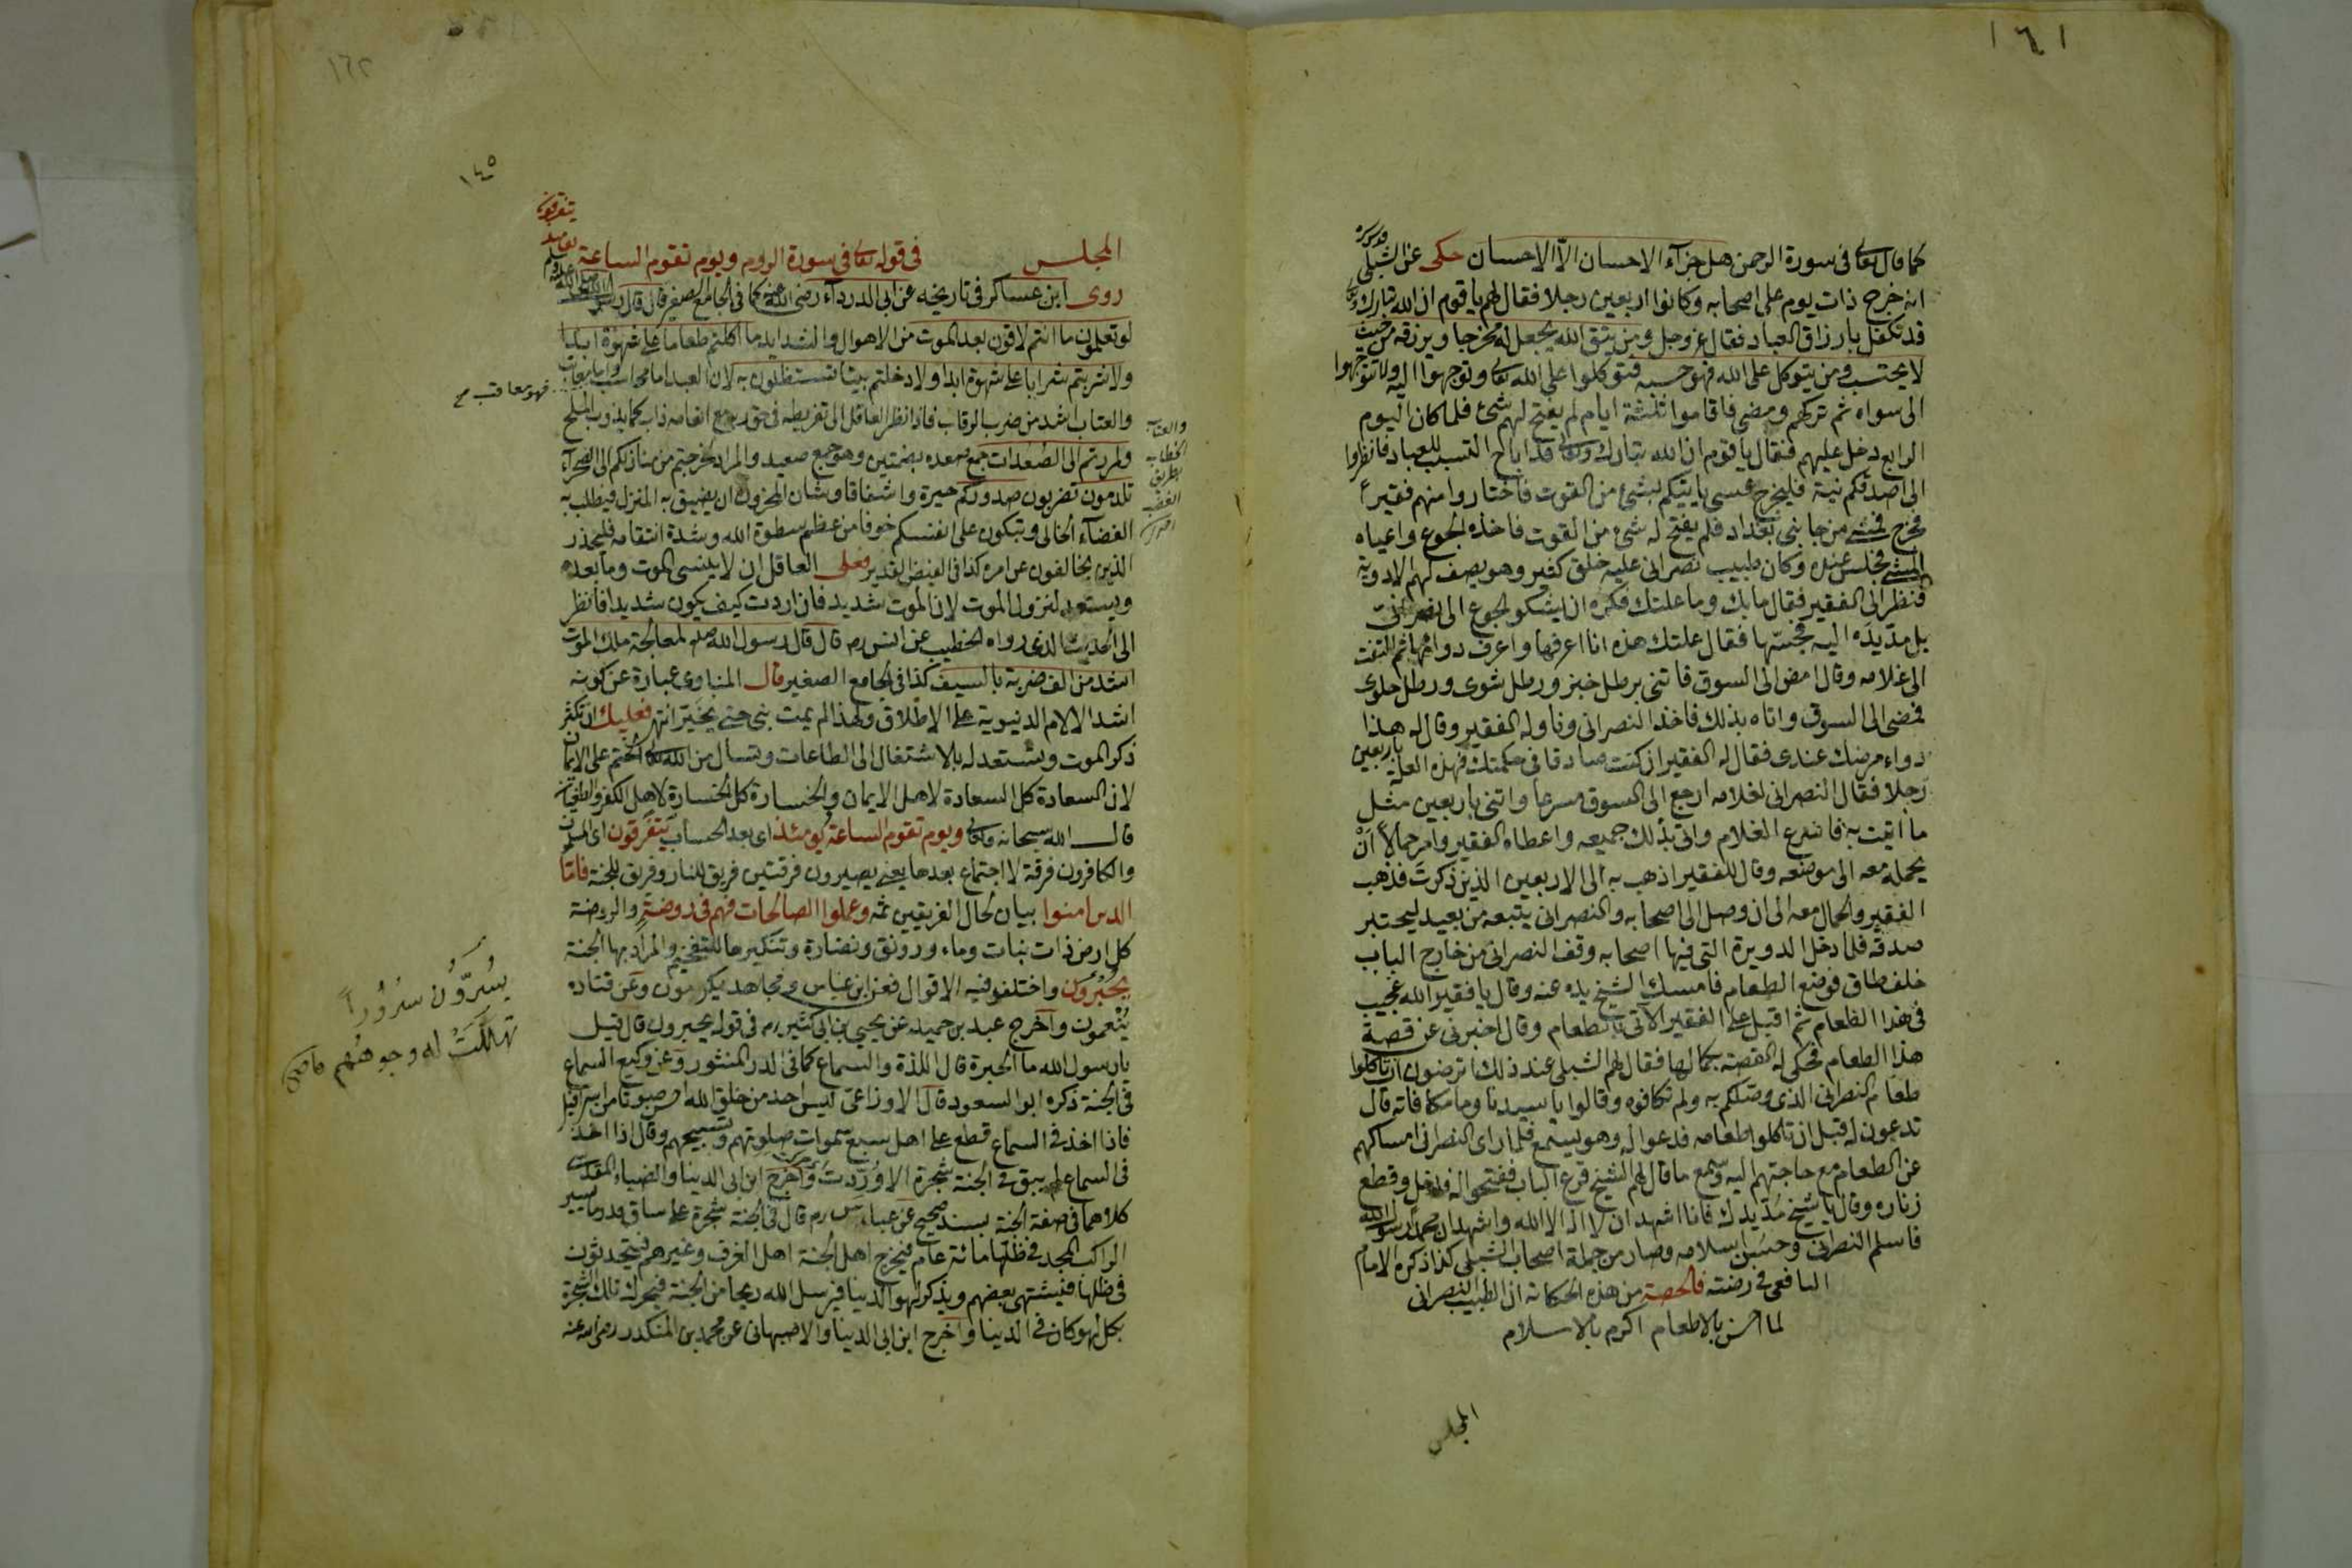 ١٦١
كما قال تعالى فى سورة الرحمن هل جزآء الاحسان الّا الاحسان حكى عن الشبلى قدس سره
انه خرج ذات يوم على اصحابه وكانوا اربعين رجلا فقال لهم يا قوم ان الله تبارك وتعالى
قد تكفل بارزاق العباد فقال عز وجل ومن يتق الله يجعل له مخرجا ويرزقه من حيث
لا يحتسب ومن يتوكل على الله فهو حسبه فتوكلوا على الله تعالى وتوجهوا اليه ولا تتوجهوا
الى سواه ثم تركهم ومضى فاقاموا ثلثة ايام لم يفتح لهم شئ فلما كان اليوم
الرابع دخل عليهم فقال يا قوم ان الله تبارك وتعالى قد اباح التسبب للعباد فانظروا
الى اصدقكم نية فليخرج عسى ياتيكم بشئ من القوت فاختاروا منهم فقيرا
فخرج فمشى من جانبى بغداد فلم يفتح له شئ من القوت فاخذه الجوع واعياه
المشى فجلس عنده وكان طبيب نصرانى عليه خلق كثير وهو يصف لهم الادوية
فنظر الى الفقير فقال مابك وما علتك فكره ان يشكو الجوع الى نصرانى
بل مدّ يده اليه فجسّها فقال علتك هذه انا اعرفها واعرف دواءها ثم التفت
الى غلامه وقال امض الى السوق فاتنى برطل خبز ورطل شوى ورطل حلوى
فمضى الى السوق واتاه بذلك فاخذ النصرانى وناوله الفقير وقال له هذا
دواء مرضك عندى فقال له الفقير ان كنت صادقا فى حكمتك فهذه العلة باربعين
رجلا فقال النصرانى لغلامه ارجع الى السوق مسرعا واتنى باربعين مثل
ما اتيت به فاسرع الغلام واتى بذلك جميعه واعطاه الفقير وامر حمالا ان
يحمله معه الى موضعه وقال للفقير اذهب به الى الاربعين الذين ذكرت فذهب
الفقير والحمال معه الى ان وصل الى اصحابه والنصرانى يتبعه من بعيد ليختبر
صدقه فلما دخل الدويرة التى فيها اصحابه وقف النصرانى من خارج الباب
خلف طاق فوضع الطعام فامسك الشيخ يده عنه وقال يا فقير الله عجيب
فى هذا الطعام ثم اقبل على الفقير الآتى بالطعام وقال اخبرنى عن قصة
هذا الطعام فحكى له القصة بكمالها فقال لهم الشبلى عند ذلك اترضون ان تاكلوا
طعام النصرانى الذى وصلكم به ولم تكافوه وقالوا يا سيدنا وما مكافاته قال
تدعون له قبل ان تاكلوا طعامه فدعوا له وهو يستمع فلما راى النصرانى امساكهم
عن الطعام مع حاجتهم اليه وسمع ما قال لهم الشيخ قرع الباب ففتحوا له فدخل وقطع
زناره وقال يا شيخ مد يدك فانا اشهد ان لا اله الا الله واشهد ان محمدا رسول الله
فاسلم النصرانى وحسن اسلامه وصار من جملة اصحاب الشبلى كذا ذكره الامام
اليافعى فى روضته فالحصة من هذه الحكاية ان الطبيب النصرانى
لما احسن بالاطعام اكرم بالاسلام
المجلس
١٦٢
١٤٥
المجلس فى قوله تعالى فى سورة الروم ويوم تقوم الساعة يومئذ يتفرقون
روى ابن عساكر فى تاريخه عن ابى الدرداء رضى الله عنه كما فى الجامع الصغير قال قال رسول الله صلى الله عليه وسلم
لو تعلمون ما انتم لاقون بعد الموت من الاهوال والشدايد ما اكلتم طعاما على شهوة ابدا
ولا شربتم شرابا على شهوة ابدا ولا دخلتم بيتا تستظلون به لان العبد اما محاسب واما معاتب
فهو معاقب صح
والعتاب اشد من ضرب الرقاب فاذا نظر العاقل الى تفريطه فى حق ربه مع انعامه ذاب كما يذوب الملح
والعتاب
الخطاب
بطريق
الغضب
ولمررتم الى الصعدات جمع صعده بضمتين وهو جمع صعيد والمراد لخرجتم من منازلكم الى الصحرآء
تلدمون تضربون صدوركم حيرة واشفاقا وشان المحزون ان يضيق به المنزل فيطلب به
الفضآء الخالى وتبكون على انفسكم خوفا من عظم سطوة الله وشدة انتقامه فليحذر
الذين يخالفون عن امره كذا فى الفيض القدير فعلى العاقل ان لا ينسى الموت وما بعده
ويستعد لنزول الموت لان الموت شديد فان اردت كيف يكون شديدا فانظر
الى الحديث الذى رواه الخطيب عن انس رم قال قال رسول الله صلم لمعالجة ملك الموت
اشد من الف ضربة بالسيف كذا فى الجامع الصغير قال المناوى عبارة عن كونه
اشد الالام الدنيوية على الاطلاق ولهذا لم يمت نبى حتى يخيّر انتهى فعليك ان تكثر
ذكر الموت وتستعد له بالاشتغال الى الطاعات وتسال من الله تعالى الختم على الايمان
لان السعادة كل السعادة لاهل الايمان والخسارة كل الخسارة لاهل الكفر والطغيان
قال الله سبحانه وتعالى ويوم تقوم الساعة يومئذ اى بعد الحساب يتفرقون اى المسلمون
والكافرون فرقة لا اجتماع بعدها يعنى يصيرون فرقتين فريق للنار وفريق للجنة فامّا
الذين امنوا بيان لحال الفريقين ثمه وعملوا الصالحات فهم فى روضة والروضة
كل ارض ذات نبات وماء ورونق ونضارة وتنكيرها للتفخيم والمراد بها الجنة
يحبرون واختلفو فيه الاقوال فعن ابن عباس ومجاهد يكرمون وعن قتاده
يسرّون سرورا
تهللت له وجوههم
ينعمون واخرج عبد بن حميد عن يحيى بن ابى كثير رم فى قوله يحبرون قال قيل
يا رسول الله ما الحبرة قال اللذة والسماع كما فى الدر المنثور وعن وكيع السماع
فى الجنة ذكره ابو السعود قال الاوزاعى ليس احد من خلق الله احسن صوتا من اسرافيل
فاذا اخذ فى السماع قطع على اهل سبع سموات صلوتهم وتسبيحهم وقال اذا اخذ
فى السماع لم يبق فى الجنة شجرة الا وردت واخرج ابن ابى الدنيا والضياء المقدسى
كلاهما فى صفة الجنة بسند صحيح عن عباس رم قال فى الجنة شجرة على ساق قدر ما يسير
الراكب المجد فى ظلها مائة عام فيخرج اهل الجنة اهل الغرف وغيرهم فيتحدثون
فى ظلها فيشتهى بعضهم ويذكر لهو الدنيا فيرسل الله ريحا من الجنة فيحرك تلك الشجرة
بكل لهو كان فى الدنيا واخرج ابن ابى الدنيا والاصبهانى عن محمد بن المنكدر رضى الله عنه